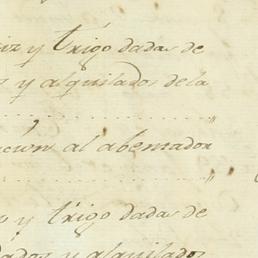 y trigo dadas de
y alquiladas de la
al abenador
y trigo dadas de
y alquilados